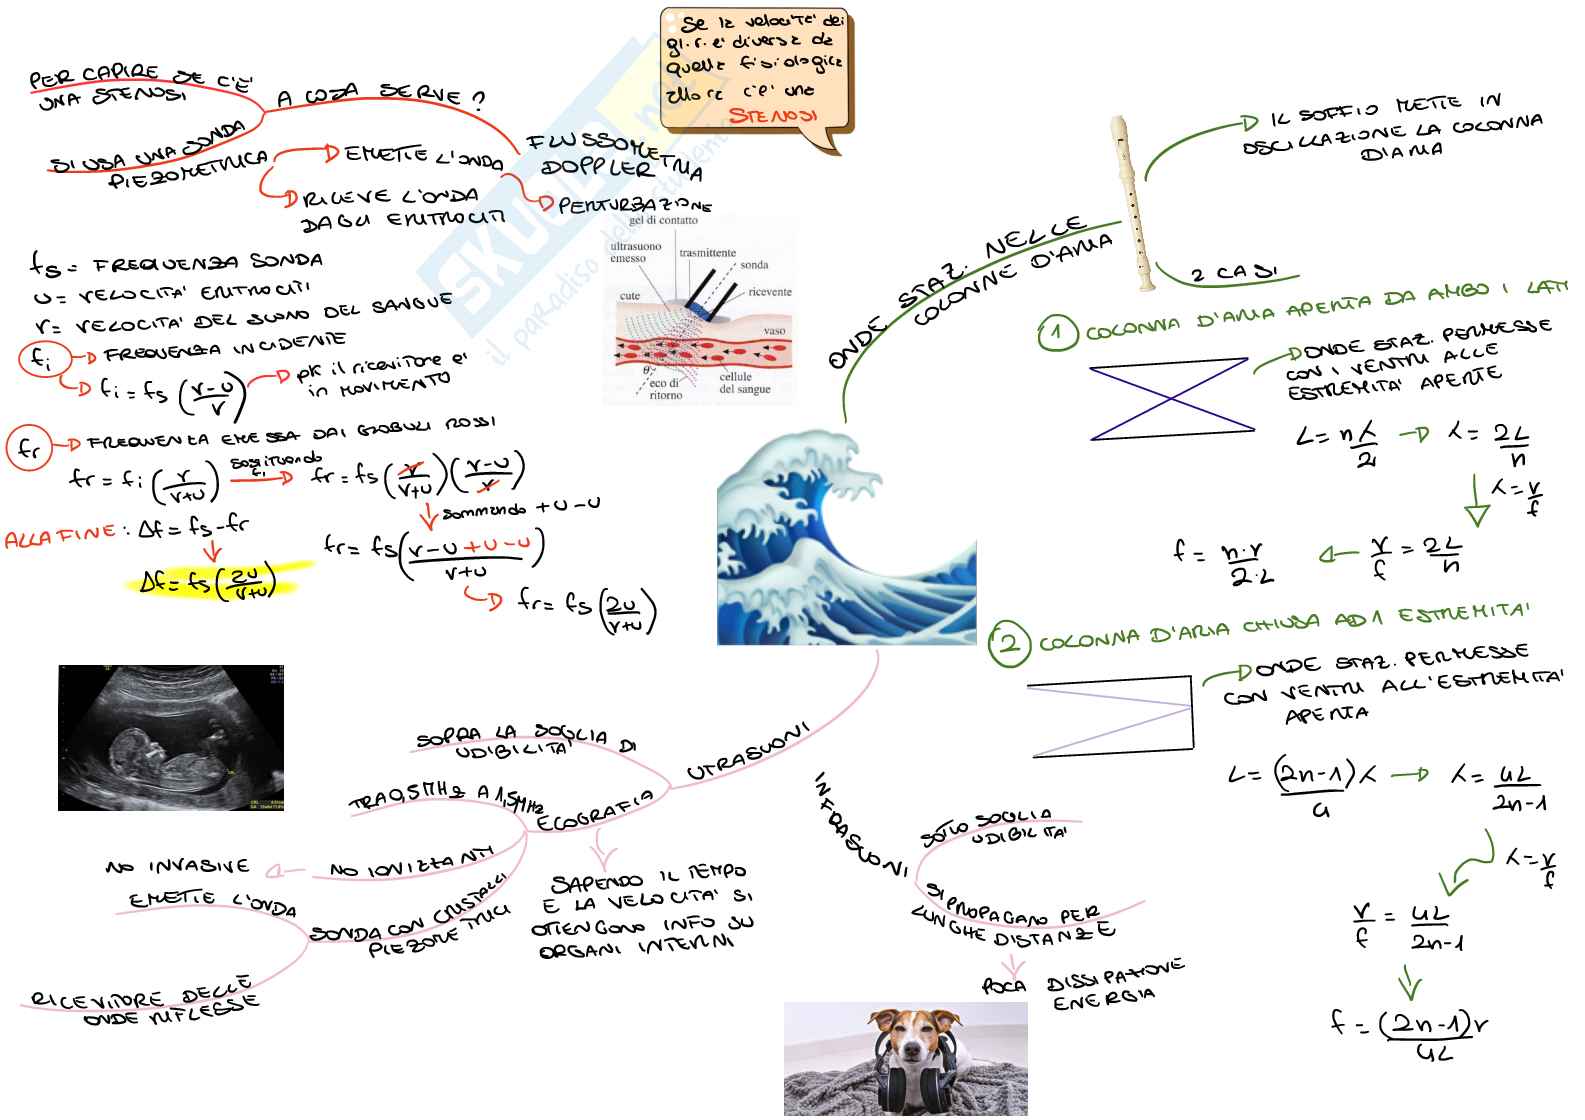 Se la velocità dei
gl.r. e' diversa da
quella fisiologica
allora c'e' una
STENOSI
PER CAPIRE SE C'E'
UNA STENOSI
A COSA SERVE?
SI USA UNA SONDA
PIEZOMETRICA
EMETTE L'ONDA
RICEVE L'ONDA
DAGLI ERITROCITI
FLUSSOMETRIA
DOPPLER
PERTURBAZIONE
SKUOLA.net
il paradiso dello studente
gel di contatto
ultrasuono
emesso
trasmittente
sonda
ricevente
cute
vaso
θ
eco di
ritorno
cellule
del sangue
fs = FREQUENZA SONDA
u = VELOCITA' ERITROCITI
v = VELOCITA' DEL SUONO DEL SANGUE
fi → FREQUENZA INCIDENTE
fi = fs (v-u/v) → pk il ricevitore e'
in MOVIMENTO
fr → FREQUENZA EMESSA DAI GLOBULI ROSSI
fr = fi (v/v+u) sostituendo fi → fr = fs (v/v+u) (v-u/v)
sommando +u-u
ALLA FINE: Δf = fs - fr
fr = fs (v-u+u-u/v+u)
Δf = fs (2u/v+u)
fr = fs (2u/v+u)
ONDE STAZ. NELLE
COLONNE D'ARIA
IL SOFFIO METTE IN
OSCILLAZIONE LA COLONNA
D'ARIA
2 CASI
1 COLONNA D'ARIA APERTA DA AMBO I LATI
ONDE STAZ. PERMESSE
CON I VENTRI ALLE
ESTREMITA' APERTE
L = nλ/2 → λ = 2L/n
λ = v/f
f = n·v/2·L ← v/f = 2L/n
2 COLONNA D'ARIA CHIUSA AD 1 ESTREMITA'
ONDE STAZ. PERMESSE
CON VENTRI ALL'ESTREMITA'
APERTA
L = (2n-1)λ/4 → λ = 4L/2n-1
λ = v/f
v/f = 4L/2n-1
f = (2n-1)v/4L
UTRASUONI
SOPRA LA SOGLIA DI
UDIBILITA'
ECOGRAFIA
TRA 0,5MHz A 1,5MHz
NO IONIZZANTI
NO INVASIVE
SONDA CON CRISTALLI
PIEZOMETRICI
EMETTE L'ONDA
RICEVITORE DELLE
ONDE RIFLESSE
SAPENDO IL TEMPO
E LA VELOCITA' SI
OTTENGONO INFO SU
ORGANI INTERNI
INFRASUONI
SOTTO SOGLIA
UDIBILITA'
SI PROPAGANO PER
LUNGHE DISTANZE
POCA DISSIPAZIONE
ENERGIA